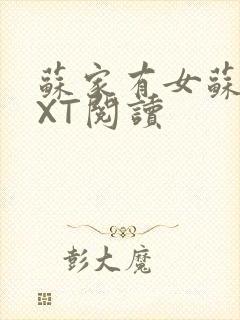 蘇家有女蘇
XT閱讀
彭大魔